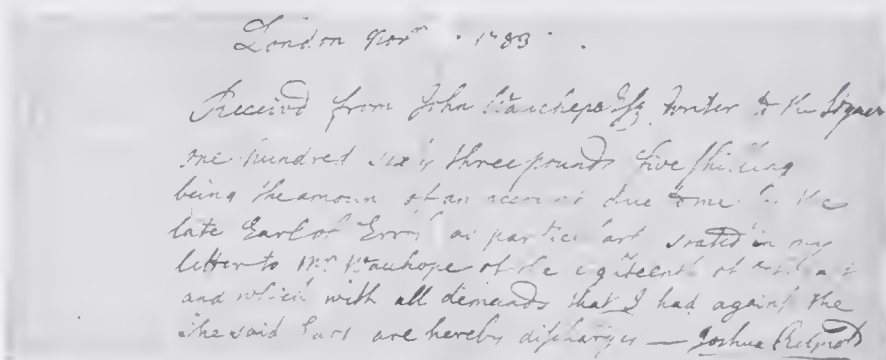 London Novr 1783
Received from John Wauchope Esqr Writer to the Signet
one hundred sixty three pounds five shilling
being the amount of an account due to me by the
late Earl of Errol as particularly stated in my
letter to Mr Wauhope of the eighteenth of
and which with all demands that I had against the
the said Earl are hereby discharged — Joshua